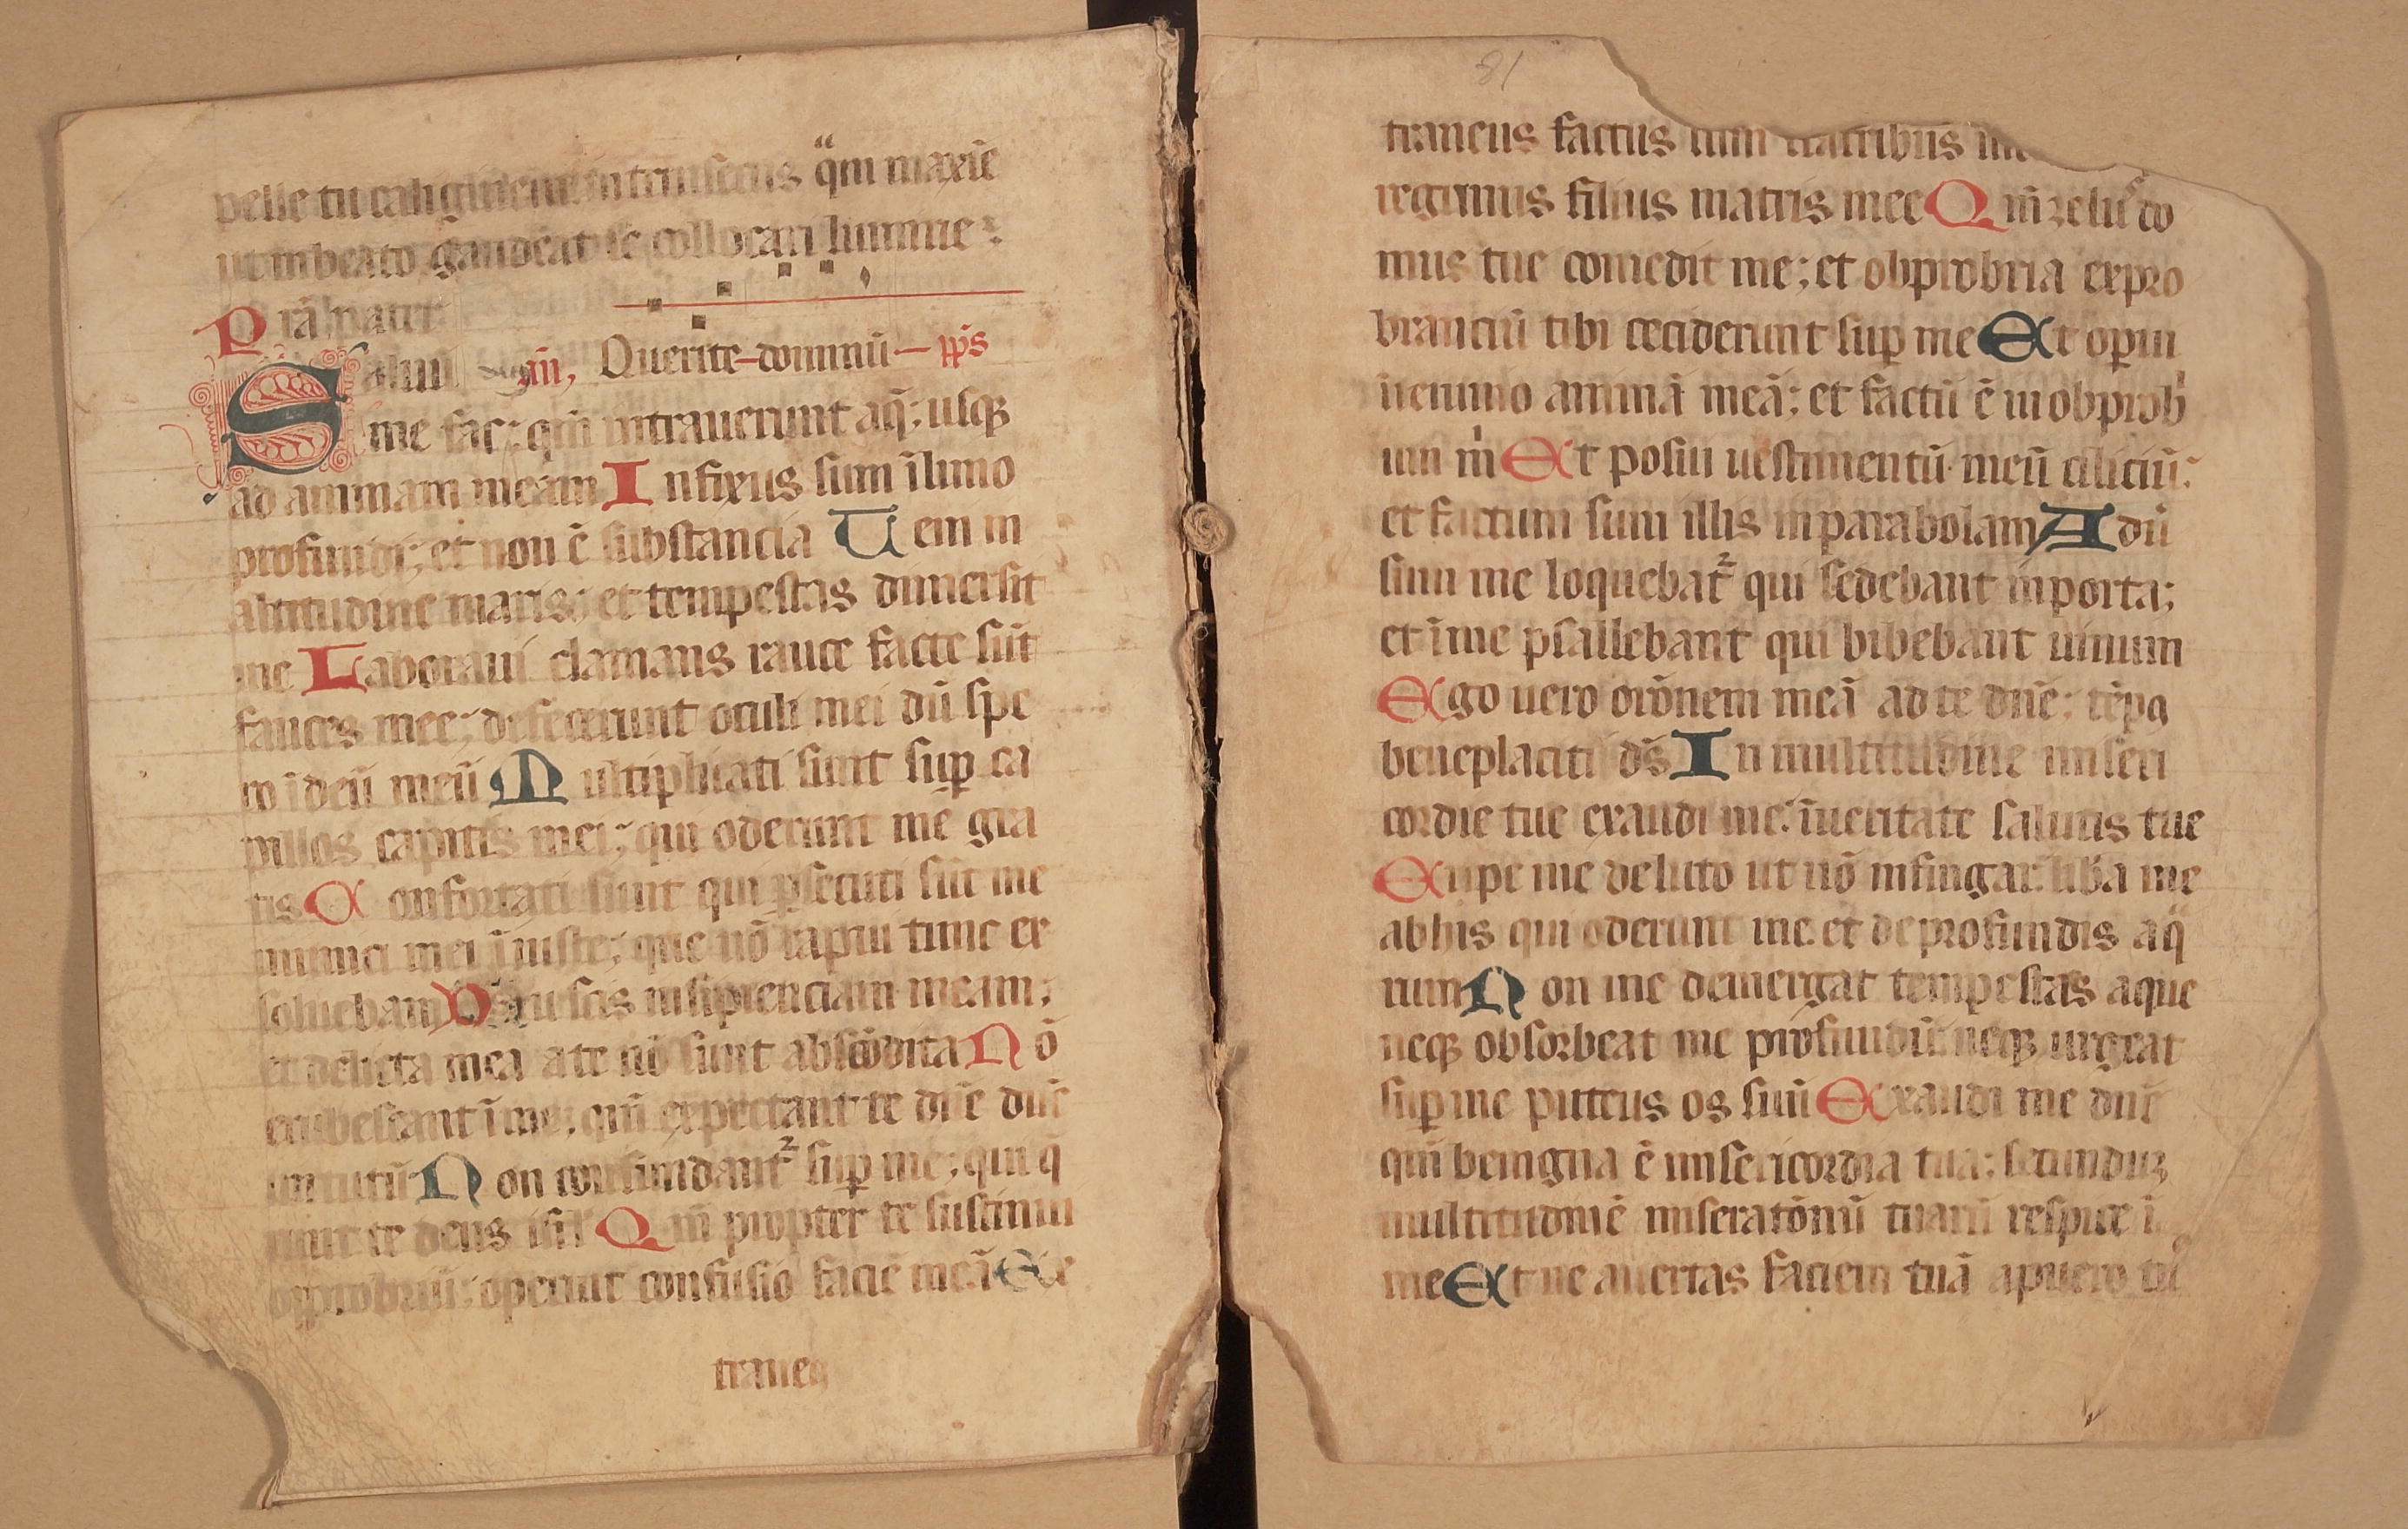 pelle tu caliginem intrinsecus q̈m maxīe
ut in beato gaudeat se collocari lumine
P rā pater
Querite dominū pṡ
Saluū
me fac; qm̄ intrauerunt aq̄; usqꝫ
ad animam meam I nfixus sum ī limo
profundi; et non ē substancia U em in
altitudine maris; et tempestas dimersit
me L aboraui clamans rauce facte sūt
fauces mee; defecerunt oculi mei dū spe
ro ī deū meū M ultiplicati sunt suꝑ ca
pillos capitis mei; qui oderunt me gra
tis C onfortati sunt qui ꝑsecuti sūt me
inimici mei īiuste; que nō rapui tunc ex
soluebam D s tu scis insipienciam meam;
et delicta mea a te nō sunt abscōdita N ō
erubescant ī me; qui expectant te dn̄e dn̄e
uirtutū N on confundantᷣ suꝑ me; qui q̄
runt te deus isrl Q m̄ propter te sustinui
opprobriū; operuit confusio faciē meā E x
traneꝯ
81
traneus factus sum fratribus
regrinus filius matris mee Q m̄ zelus do
mus tue comedit me; et obprobria expro
branciū tibi ceciderunt suꝑ me E t oꝑui
ī ieiunio animā meā; et factū ē in obprob
um m̍ E t posui uestimentū meū ciliciū;
et factum sum illis in parabolam A duer
sum me loquebātᷣ qui sedebant in porta;
et ī me psallebant qui bibebant uinum
E go uero orōnem meā ad te dn̄e; tēpꝯ
beneplaciti ds̄ I n multitudine miseri
cordie tue exaudi me; ī ueritate salutis tue
E ripe me de luto ut nō infingar; liba me
ab his qui oderunt me et de profundis aq̈
rum N on me demergat tempestas aque
neqꝫ obsorbeat me profundū; neqꝫ urgeat
suꝑ me puteus os suū E xaudi me dn̄e
qm̄ benigna ē misericordia tua; secunduꝫ
multitudinē miseratōnū tuarū respice ī
me E t ne auertas faciem tuā a puero tuo